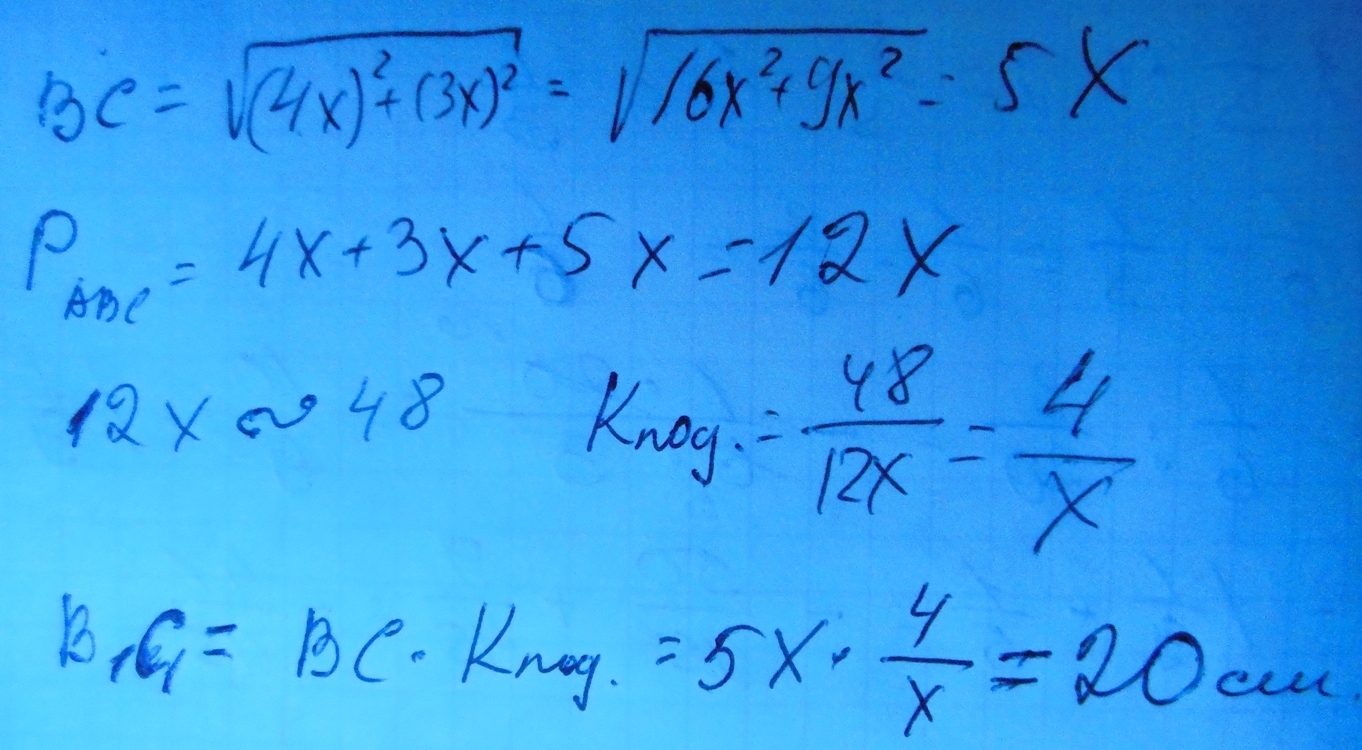 BC = √((4x)² + (3x)²) = √(16x² + 9x²) = 5x
P_ABC = 4x + 3x + 5x = 12x
12x ∾ 48 Kпод. = 48/12x = 4/x
B₁C₁ = BC · Kпод. = 5x · 4/x = 20 см.